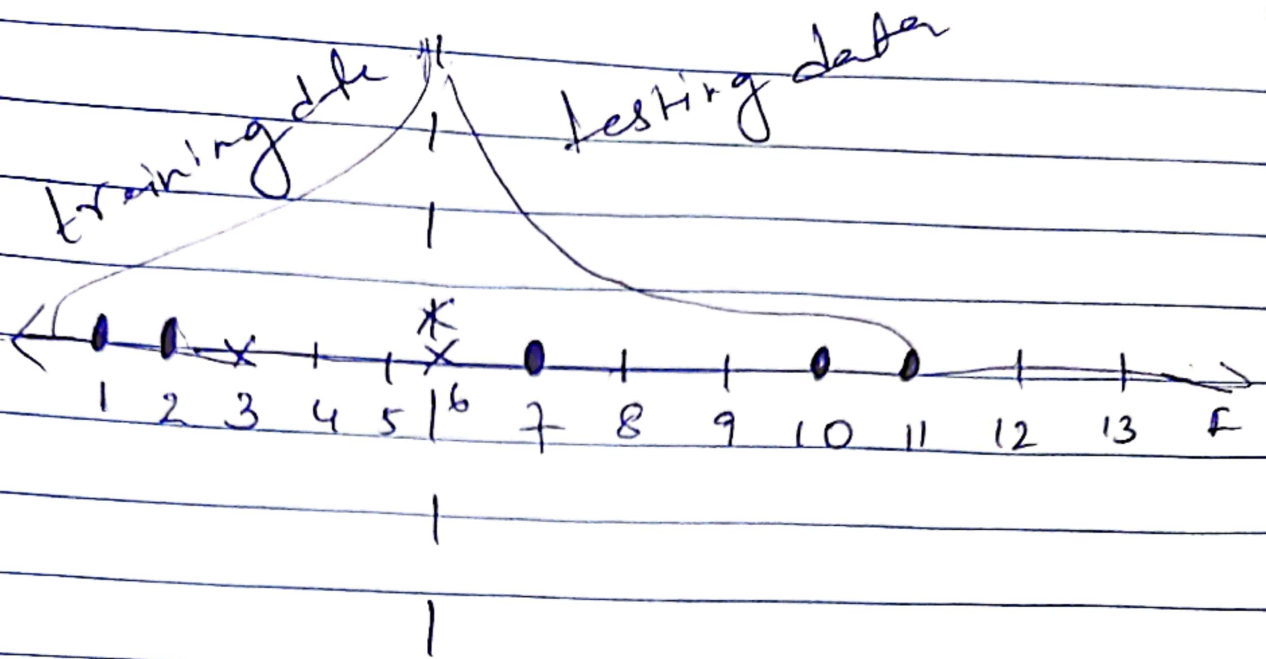 training data
testing data
1 2 3 4 5 6 7 8 9 10 11 12 13